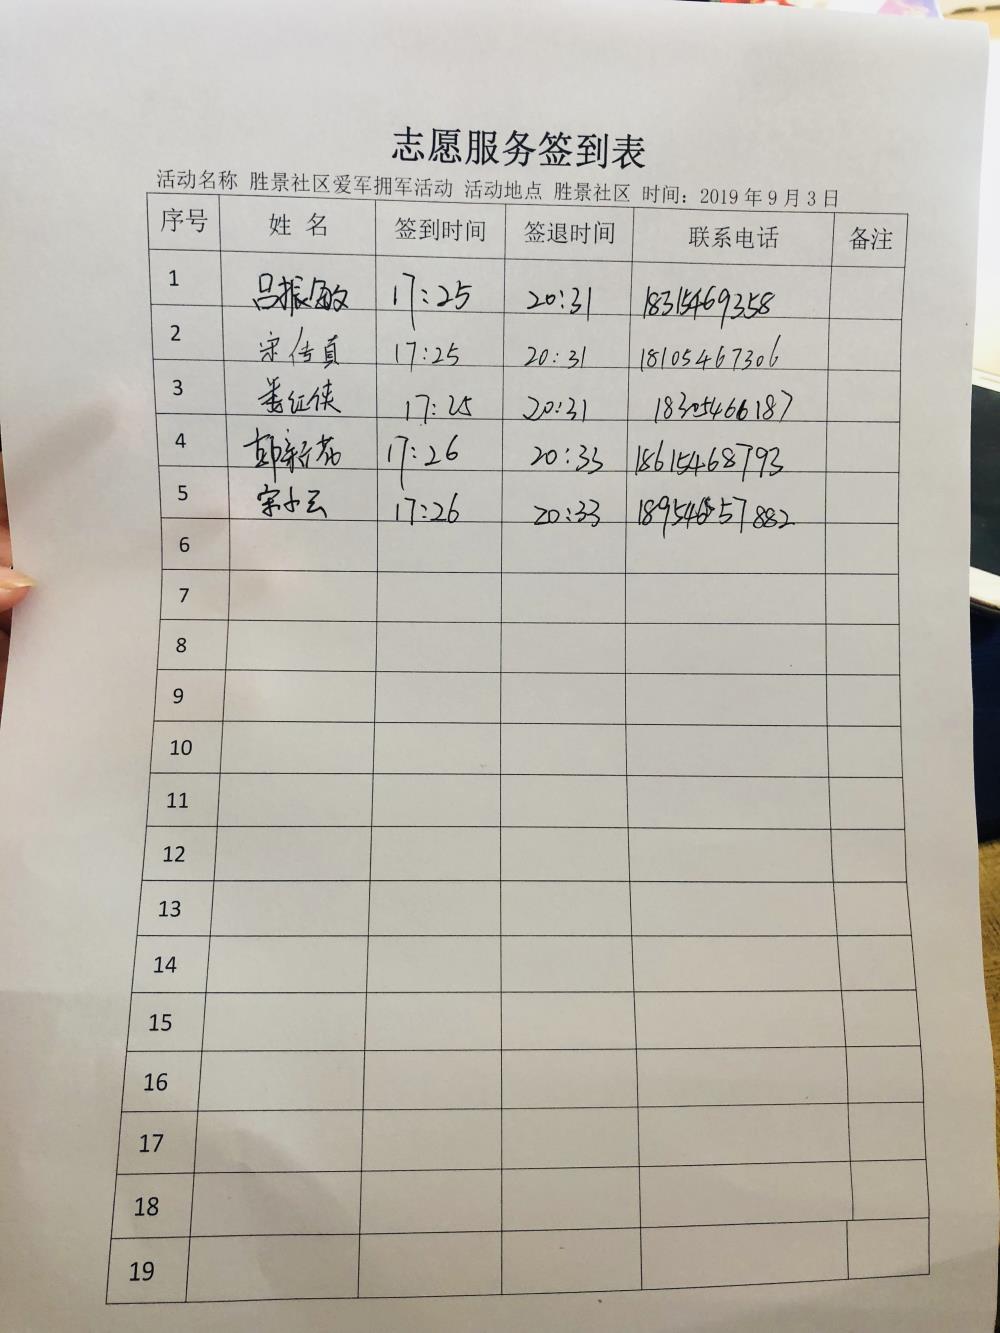 志愿服务签到表
活动名称 胜景社区爱军拥军活动 活动地点 胜景社区 时间：2019年9月3日
序号 姓名 签到时间 签退时间 联系电话 备注
1 吕振敏 17:25 20:31 18315469358
2 宋传真 17:25 20:31 18105467306
3 17:25 20:31 18305466187
4 17:26 20:33 18615468793
5 宋小云 17:26 20:33
6
7
8
9
10
11
12
13
14
15
16
17
18
19